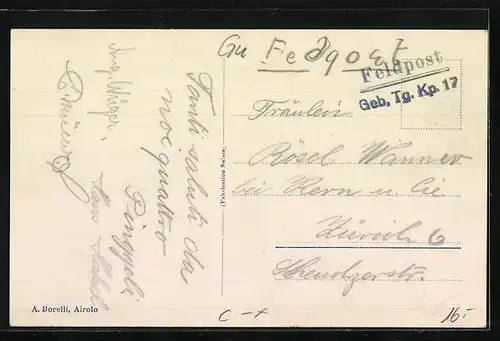 Gu Feldpost
Feldpost
Geb. Tg. Kp. 17
Tanti saluti da
noi quattro
Fräulein
Rösel Wanner
bei Kern u. Cie
Zürich 6
Scheuchzerstr.
(Fabrication Suisse)
A. Borelli, Airolo
C-x
16.-